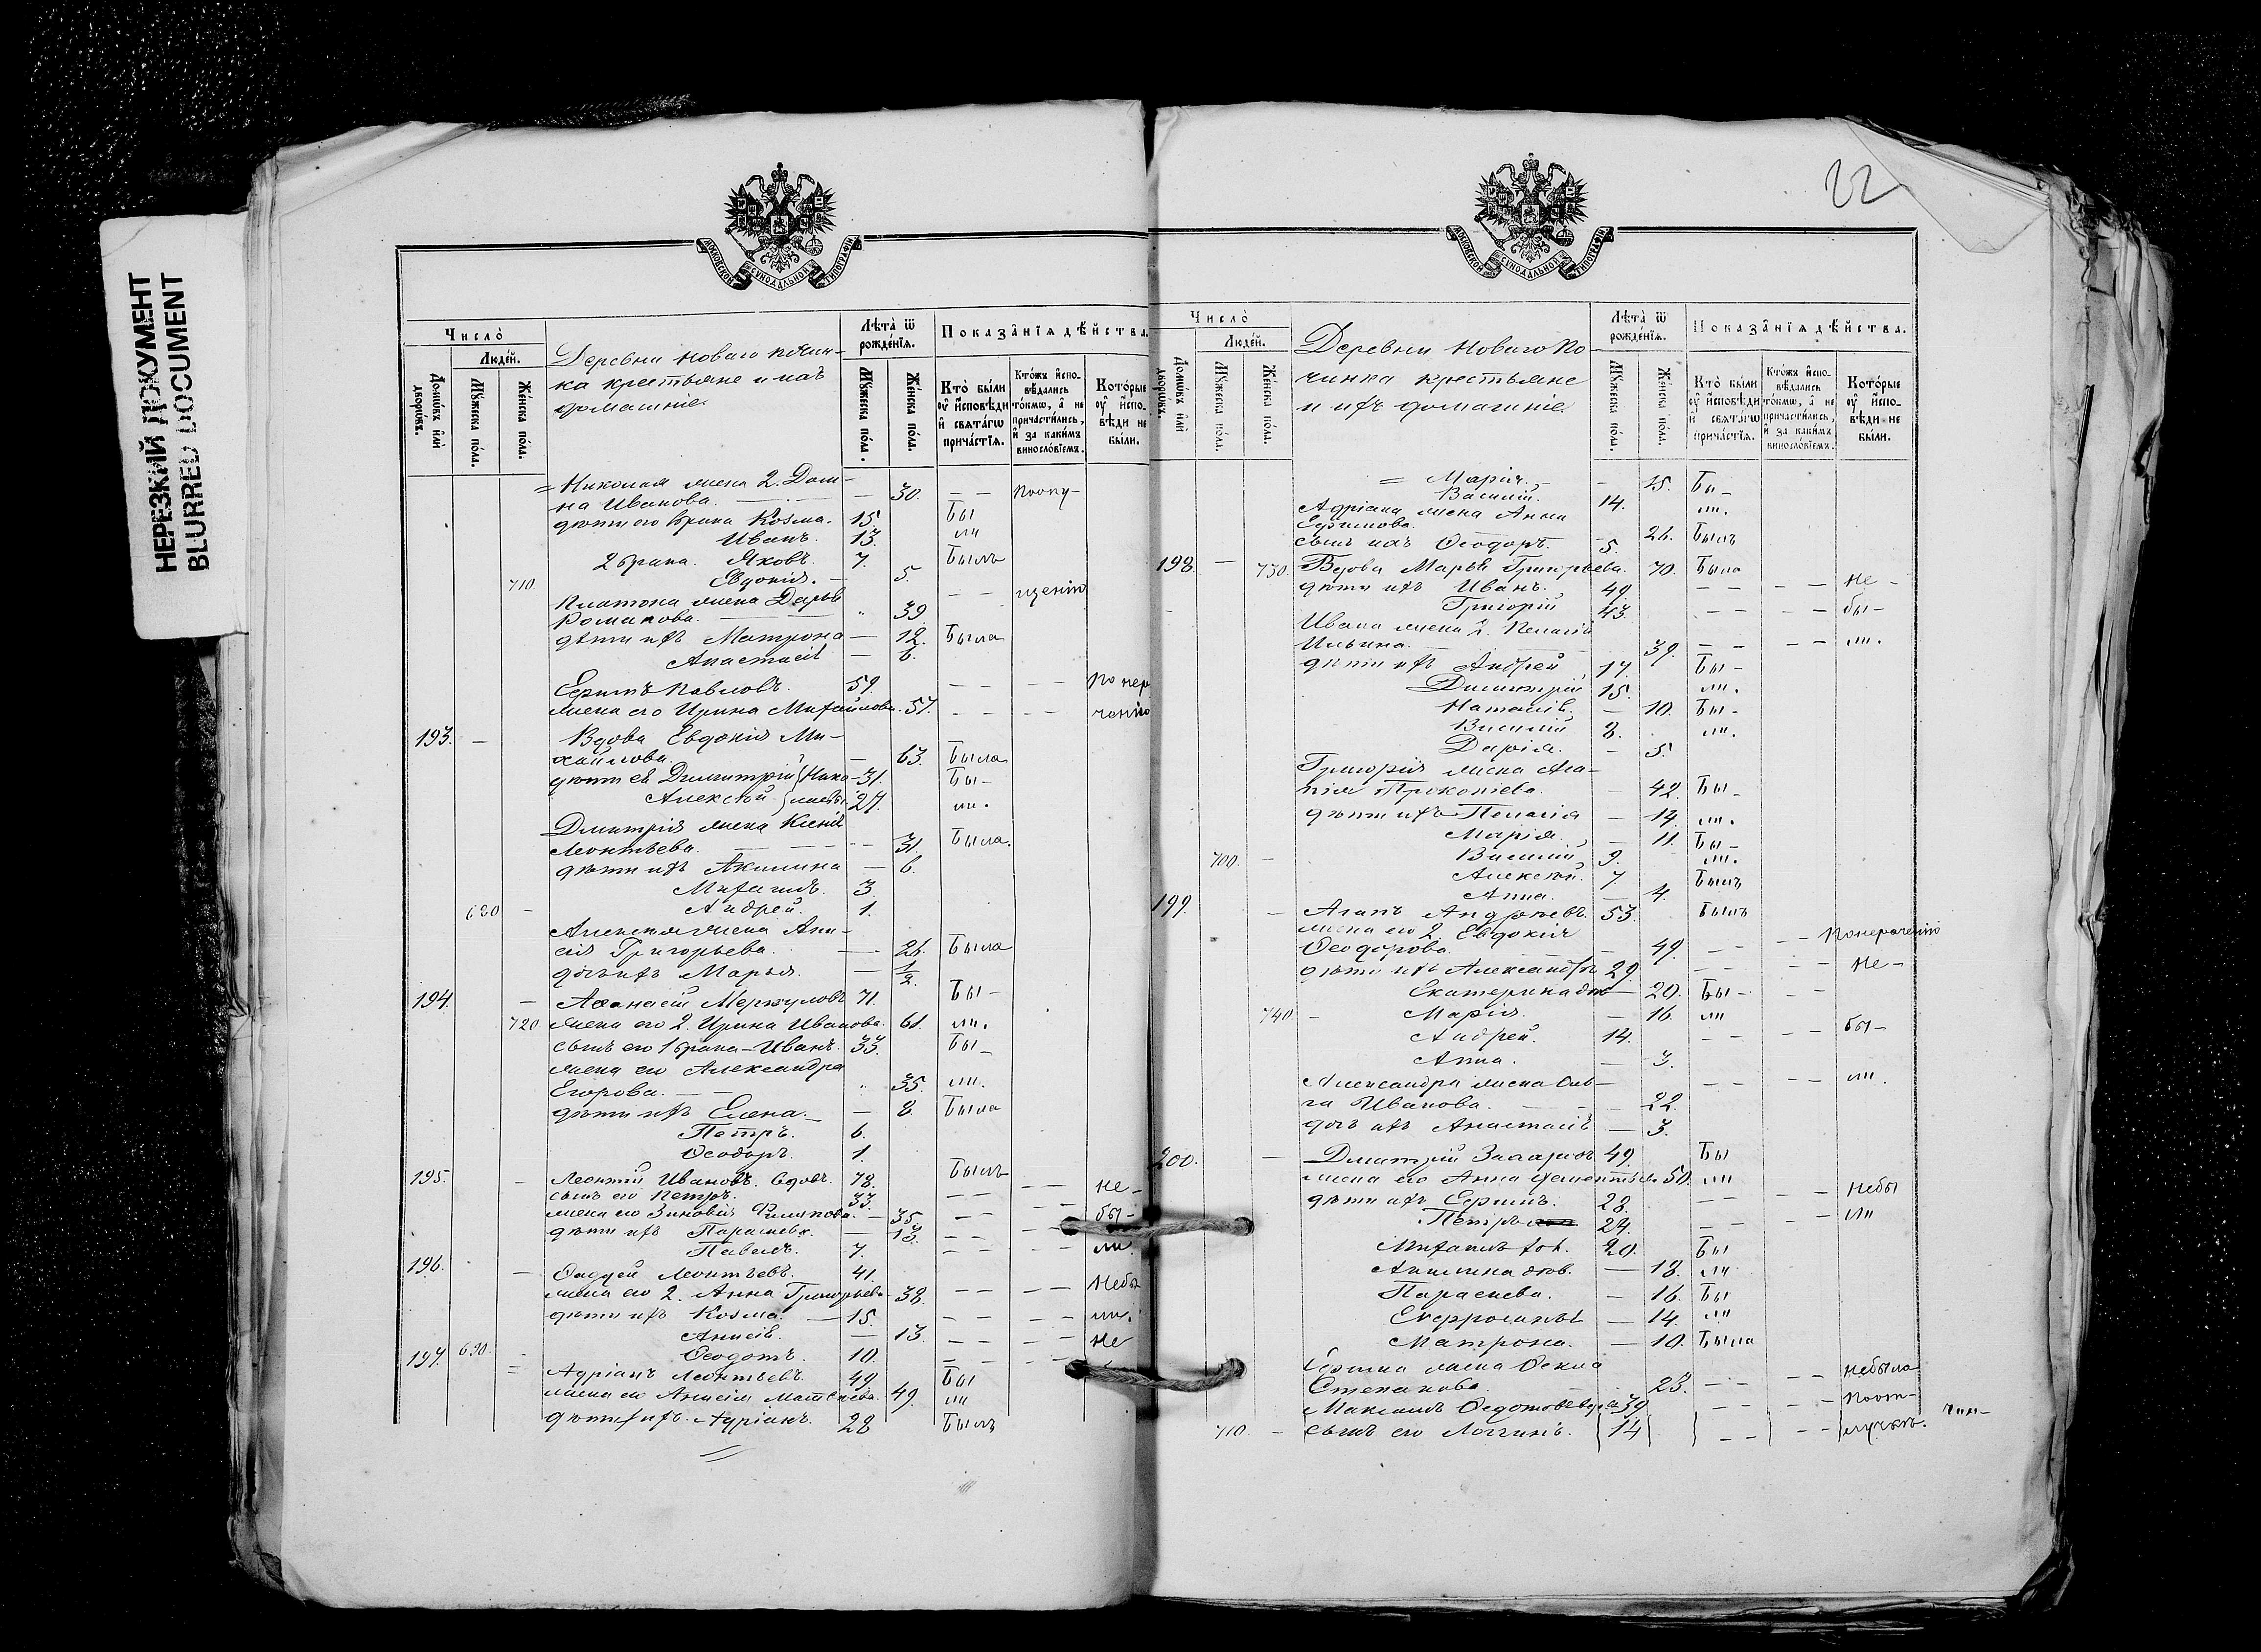 НЕРЕЗКИЙ ДОКУМЕНТ
BLURRED DOCUMENT
МОСКОВСКОЙ СѴНОДАЛЬНОЙ ТИПОГРАФІИ
Число̀
Людей.
Домѡвъ и҆лѝ дворѡвъ.
Мꙋжеска пола.
Женска пола.
Деревни Новаго Почин-
ка крестьяне и ихъ
домашніе.
Лѣта̀ ѿ рожденїѧ.
Мꙋжеска пола.
Женска пола.
Показанїѧ дѣйства.
Кто̀ были ᲂу҆ и҆сповѣди и҆ свѧтагѡ причастїѧ.
Ктожъ и҆спо-
вѣдались
токмѡ, а҆ не
причастились,
и҆ за какимъ
винословїемъ.
Которые ᲂу҆ и҆спо-
вѣди не
были.
= Николая жена 2. Дом-
на Иванова. — 30. — — По опу-
дѣти его 1 брака Козма. 15. Бы
Иванъ. 13. ли
2 брака. Яковъ. 7. Былъ
710. Евдокія. — 5.
Платона жена Дарья — — щенію
Романова. 39.
дѣти ихъ Матрона — 12. Была
Анастасія — 6.
Ефимъ Павловъ. 59. — — — — По нер
жена его Ирина Михайлова. 57. — — — — ченію
193. — Вдова Евдокія Ми-
хайлова. — 63. Была
дѣти ея Димитрій 31. Бы-
Алексѣй 27. ли.
Дмитрія жена Ксенія
Леонтьева. 31. Была.
дѣти ихъ Акилина — 6.
Михаилъ. 3
680 — Андрей. 1.
Алексѣя жена Ани-
сія Григорьева. — 26. Была
дочь ихъ Марья. — 1/2.
194. — Аѳанасій Меркуловъ 71. Бы-
720 жена его 2. Ирина Иванова. 61. ли.
сынъ его 1 брака - Иванъ. 33. Бы-
жена его Александра
Егорова. — 35. ли.
дѣти ихъ Елена. — 8. Была
Петръ. 6.
Ѳеодоръ. 1.
195. — Леонтій Ивановъ. вдовъ. 78. Былъ
сынъ его Петръ. 33. — — — — не-
жена его Зиновія Филипова. — 35 — — бы-
дѣти ихъ Параскева. — 13. — —
Павелъ. 7. — — — — ли.
196. — Леонтьевъ. 41.
жена его 2. Анна Григорьева 38. — — — — Небы
дѣти ихъ Козма. — 15. — — — — ли.
Анисія. — 13. — — — — Не
690. — Ѳеодотъ. 10. — — — —
197. = Адріанъ Леонтьевъ. 49. Бы
жена его Анисія Матвѣева. 49. ли
дѣти ихъ. Адріанъ. 28 Былъ
22
МОСКОВСКОЙ СѴНОДАЛЬНОЙ ТИПОГРАФІИ
Число̀
Людей.
Домѡвъ и҆лѝ дворѡвъ.
Мꙋжеска пола.
Женска пола.
Деревни Новаго По-
чинка крестьяне
и ихъ домашніе.
Лѣта̀ ѿ рожденїѧ.
Мꙋжеска пола.
Женска пола.
Показанїѧ дѣйства.
Кто̀ были ᲂу҆ и҆сповѣди и҆ свѧтагѡ причастїѧ.
Ктожъ и҆спо-
вѣдались
токмѡ, а҆ не
причастились,
и҆ за какимъ
винословїемъ.
Которые ᲂу҆ и҆спо-
вѣди не
были.
= Марія. — 15. Бы-
Василій. 14. ли.
Адріана жена Анна
Ефимова. 26. Былъ
сынъ ихъ Ѳеодоръ. 5.
198. — 730. Вдова Марья Григорьева. 70. Была
дѣти ихъ Иванъ. 49. — — — — Не-
Григорій 43. — — — — бы-
Ивана жена 2. Пелагія
Ильина. 39. — — — — ли.
дѣти ихъ Андрей 17. Бы-
Димитрій 15. ли.
Наталія — 10. Бы-
Василій 8. ли.
Дарія. — 5.
Григорія жена Ага-
пія Прокопіева. — 42. Бы-
дѣти ихъ Пелагія — 14. ли.
Марія — 11. Бы-
700. — Василій 9. ли.
Алексѣй. 7. Былъ
Анна. — 4.
199. — Агапъ Андреевъ. 53. Былъ
жена его 2 Евдокія Понераченію
Ѳеодорова. — 49. — — — — Не-
дѣти ихъ Александръ 29. — — — —
Екатерина — 20. Бы- — —
740 — Марія. — 16. ли
Андрей. 14. — — — — бы-
Анна. — 3.
Александра жена Оль- — — — — ли.
га Иванова. — 22.
дочь ихъ Анастасія — 3.
200. — Дмитрій 49. Бы
жена его Анна 50. ли
дѣти ихъ Ефимъ. 28. — Небы
Петръ 24. — — — ли
Михаилъ 20. Бы
Акилина — 18. ли
Параскева. — 16. Бы
Евфросинія — 14. ли
Матрона. — 10. Была
Ефима жена Ѳекла
Степанова. — 23. — — — — Небыла
Максимъ Ѳедотовъ 39 — — — — По от-
710. — сынъ его Логгинъ. 14 — — — — лучкѣ.